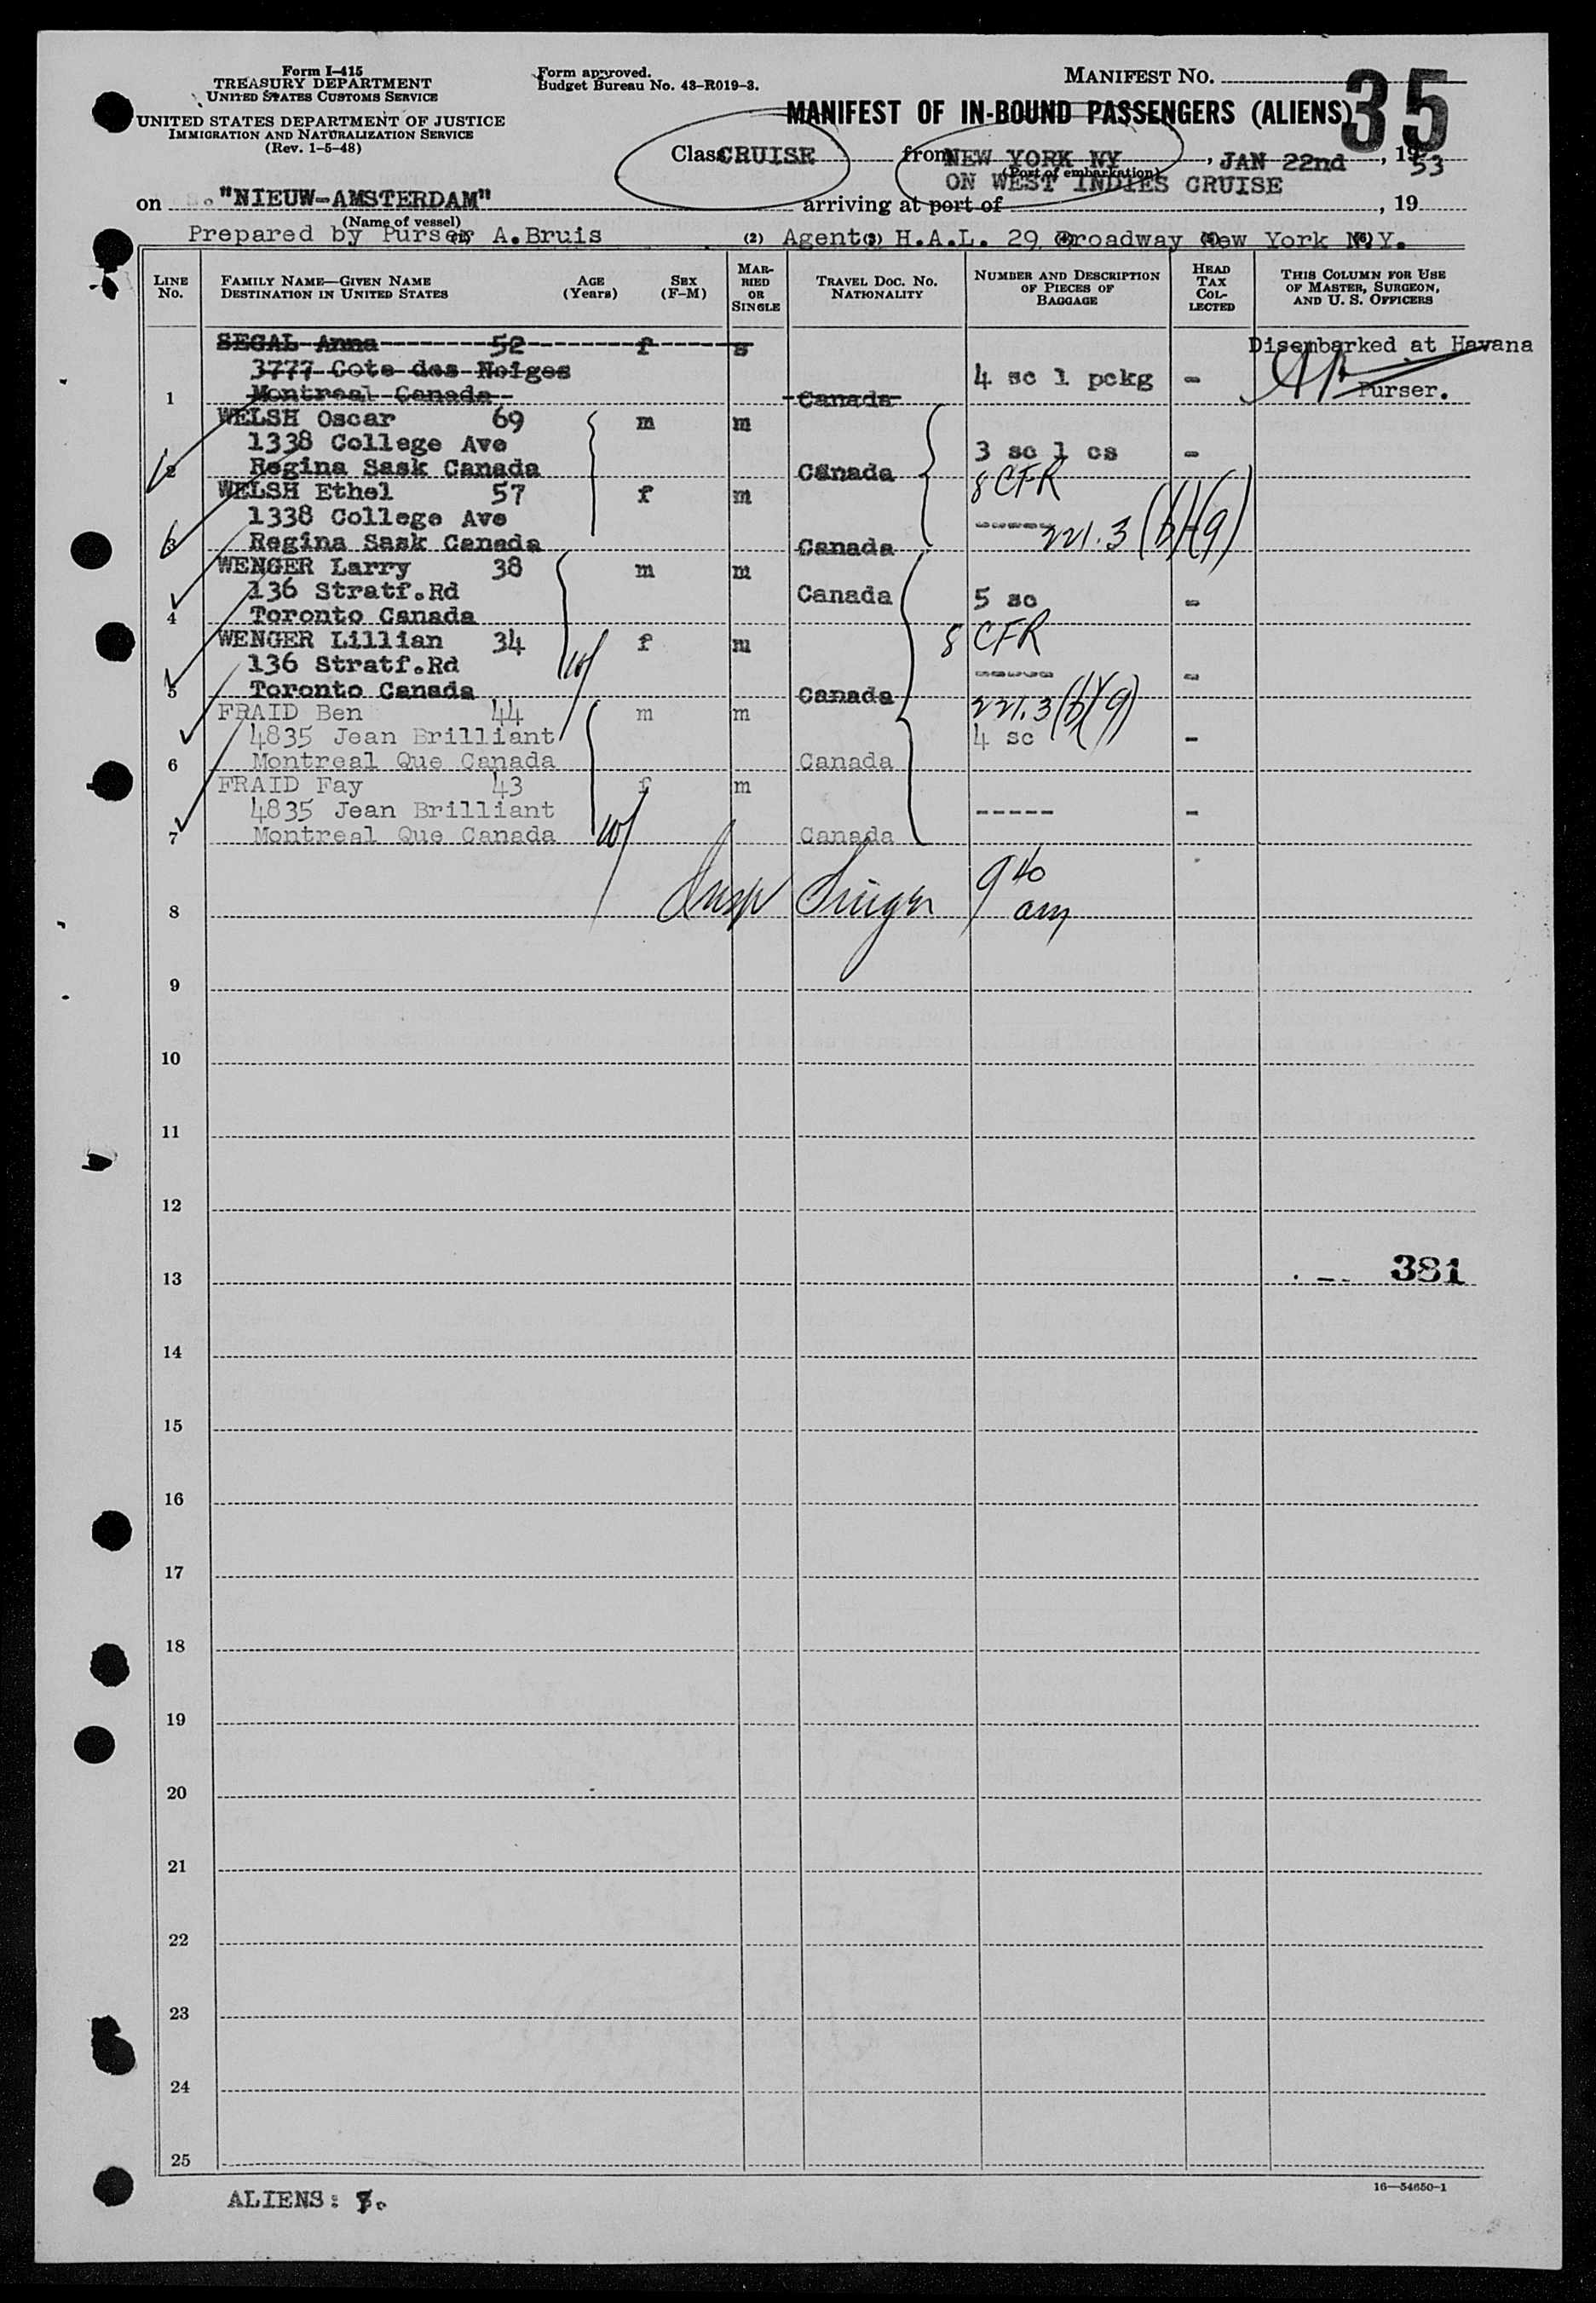 Form I-415
TREASURY DEPARTMENT
UNITED STATES CUSTOMS SERVICE
UNITED STATES DEPARTMENT OF JUSTICE
IMMIGRATION AND NATURALIZATION SERVICE
(Rev. 1-5-48)
Form approved.
Budget Bureau No. 43-R019-3.
MANIFEST No.
35
MANIFEST OF IN-BOUND PASSENGERS (ALIENS)
Class CRUISE from NEW YORK NY, JAN 22nd, 1953
(Port of embarkation)
ON WEST INDIES CRUISE
on "NIEUW-AMSTERDAM" arriving at port of , 19
(Name of vessel)
Prepared by Purser A.Bruis (2) Agent: H.A.L. 29 Broadway New York N.Y.
LINE No.
FAMILY NAME—GIVEN NAME
DESTINATION IN UNITED STATES
AGE (Years)
SEX (F-M)
MARRIED OR SINGLE
TRAVEL DOC. NO.
NATIONALITY
NUMBER AND DESCRIPTION OF PIECES OF BAGGAGE
HEAD TAX COLLECTED
THIS COLUMN FOR USE OF MASTER, SURGEON, AND U. S. OFFICERS
SEGAL Anna 52 f s Disembarked at Havana
3777 Cote des Neiges 4 sc 1 pckg -
1 Montreal Canada Canada Purser.
WELSH Oscar 69 m m
1338 College Ave 3 sc 1 cs -
2 Regina Sask Canada Canada
8 CFR
WELSH Ethel 57 f m
1338 College Ave ----- 221.3 (b)(9)
3 Regina Sask Canada Canada
WENGER Larry 38 m m
136 Stratf.Rd Canada 5 sc -
4 Toronto Canada
8 CFR
WENGER Lillian 34 f m
136 Stratf.Rd ----- -
5 Toronto Canada Canada
221.3(b)(9)
FRAID Ben 44 m m
4835 Jean Brilliant 4 sc -
6 Montreal Que Canada Canada
FRAID Fay 43 f m
4835 Jean Brilliant ----- -
7 Montreal Que Canada Canada
8 Insp Singer 9 40 am
9
10
11
12
13 381
14
15
16
17
18
19
20
21
22
23
24
25
ALIENS: 7.
16—54650-1